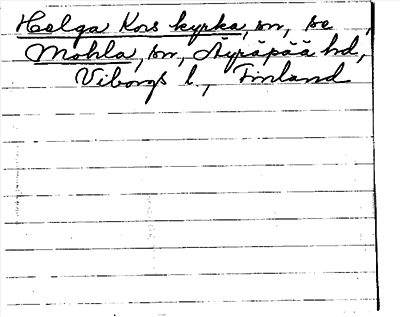 Helga Kors kyrka, sn, se ,
Mohla, sn, Äyräpää hd,
Viborgs l., Finland